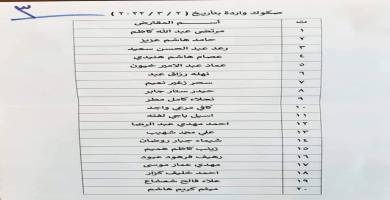 ٣
صكوك واردة بتاريخ ( ٢ / ٣ / ٢٠٢٢ )
ت اسم المقترض
١ مرتضى عبد الله كاظم
٢ حامد هاشم عزيز
٣ رعد عبد الحسن سعيد
٤ عصام هاشم هنيدي
٥ عماد عبد الامير خيون
٦ نهله رزاق عبد
٧ سحر زغير نعيم
٨ حيدر ستار جابر
٩ نجلاء كامل مطر
١٠ كافي مرعي واجد
١١ اسيل باجي لفته
١٢ احمد مهدي عبد الرضا
١٣ علي محمد شهيب
١٤ شيماء جبار روضان
١٥ زينب كاظم هميم
١٦ رهيف فرهود عبود
١٧ مهدي عمار موسى
١٨ احمد خليف كزار
١٩ علاء فالح شمخاع
٢٠ ميثم كريم هاشم